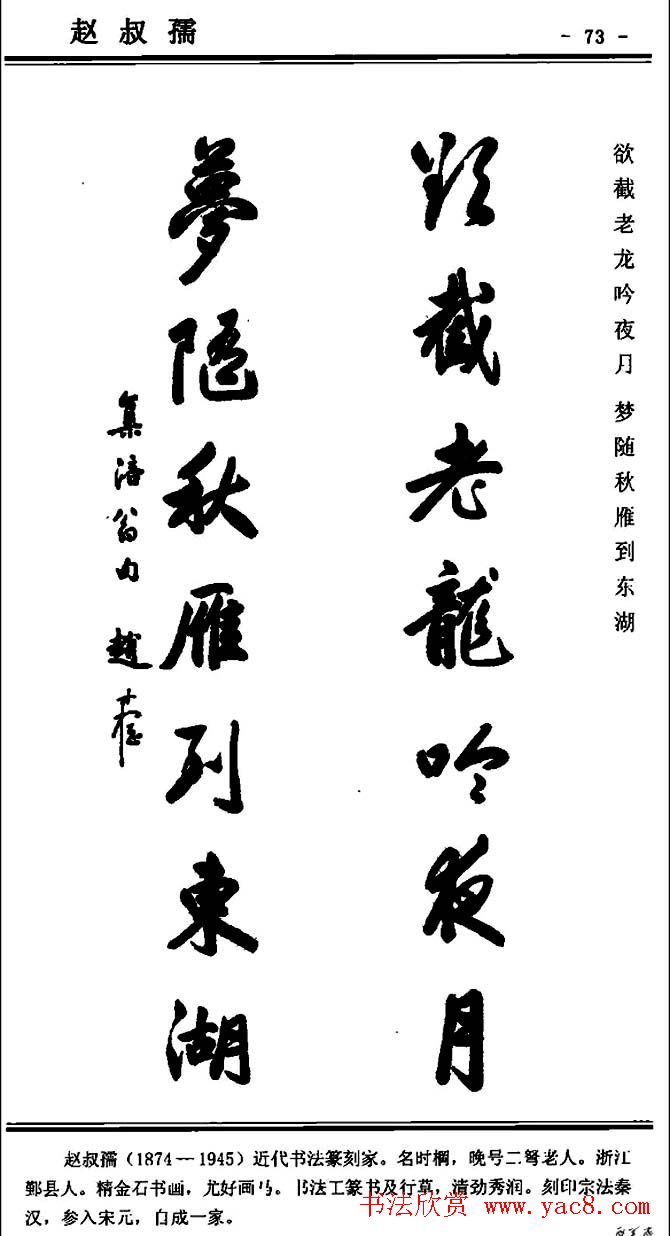 赵叔孺
- 73 -
欲截老龙吟夜月 梦随秋雁到东湖
欲截老龍吟夜月
夢随秋雁到東湖
集涪翁句 趙
赵叔孺（1874－1945）近代书法篆刻家。名时棡，晚号二弩老人。浙江
鄞县人。精金石书画，尤好画马。书法工篆书及行草，清劲秀润。刻印宗法秦
汉，参入宋元，自成一家。
书法欣赏 www.yac8.com